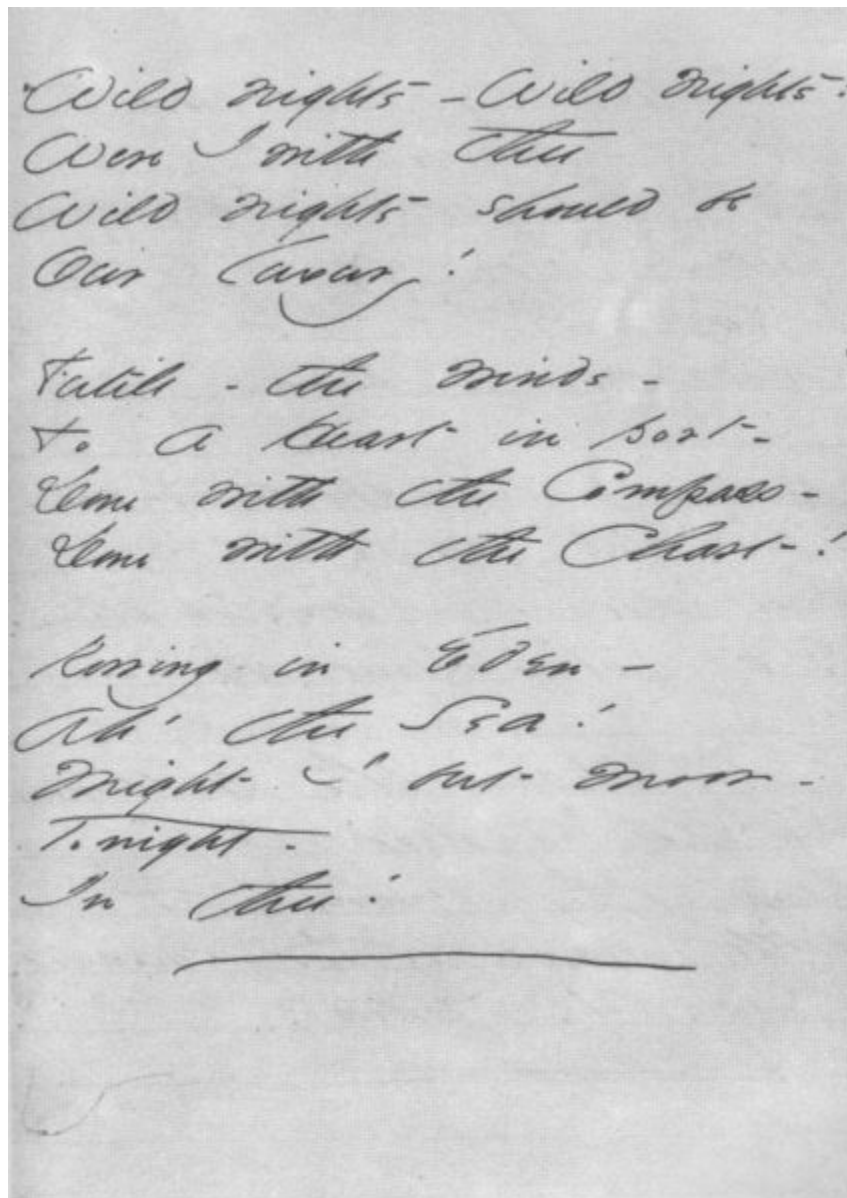 Wild nights - Wild nights!
Were I with thee
Wild nights should be
Our luxury!
Futile - the winds -
To a Heart in port -
Done with the Compass -
Done with the Chart!
Rowing in Eden -
Ah! the Sea!
Might I but moor -
Tonight -
In thee!